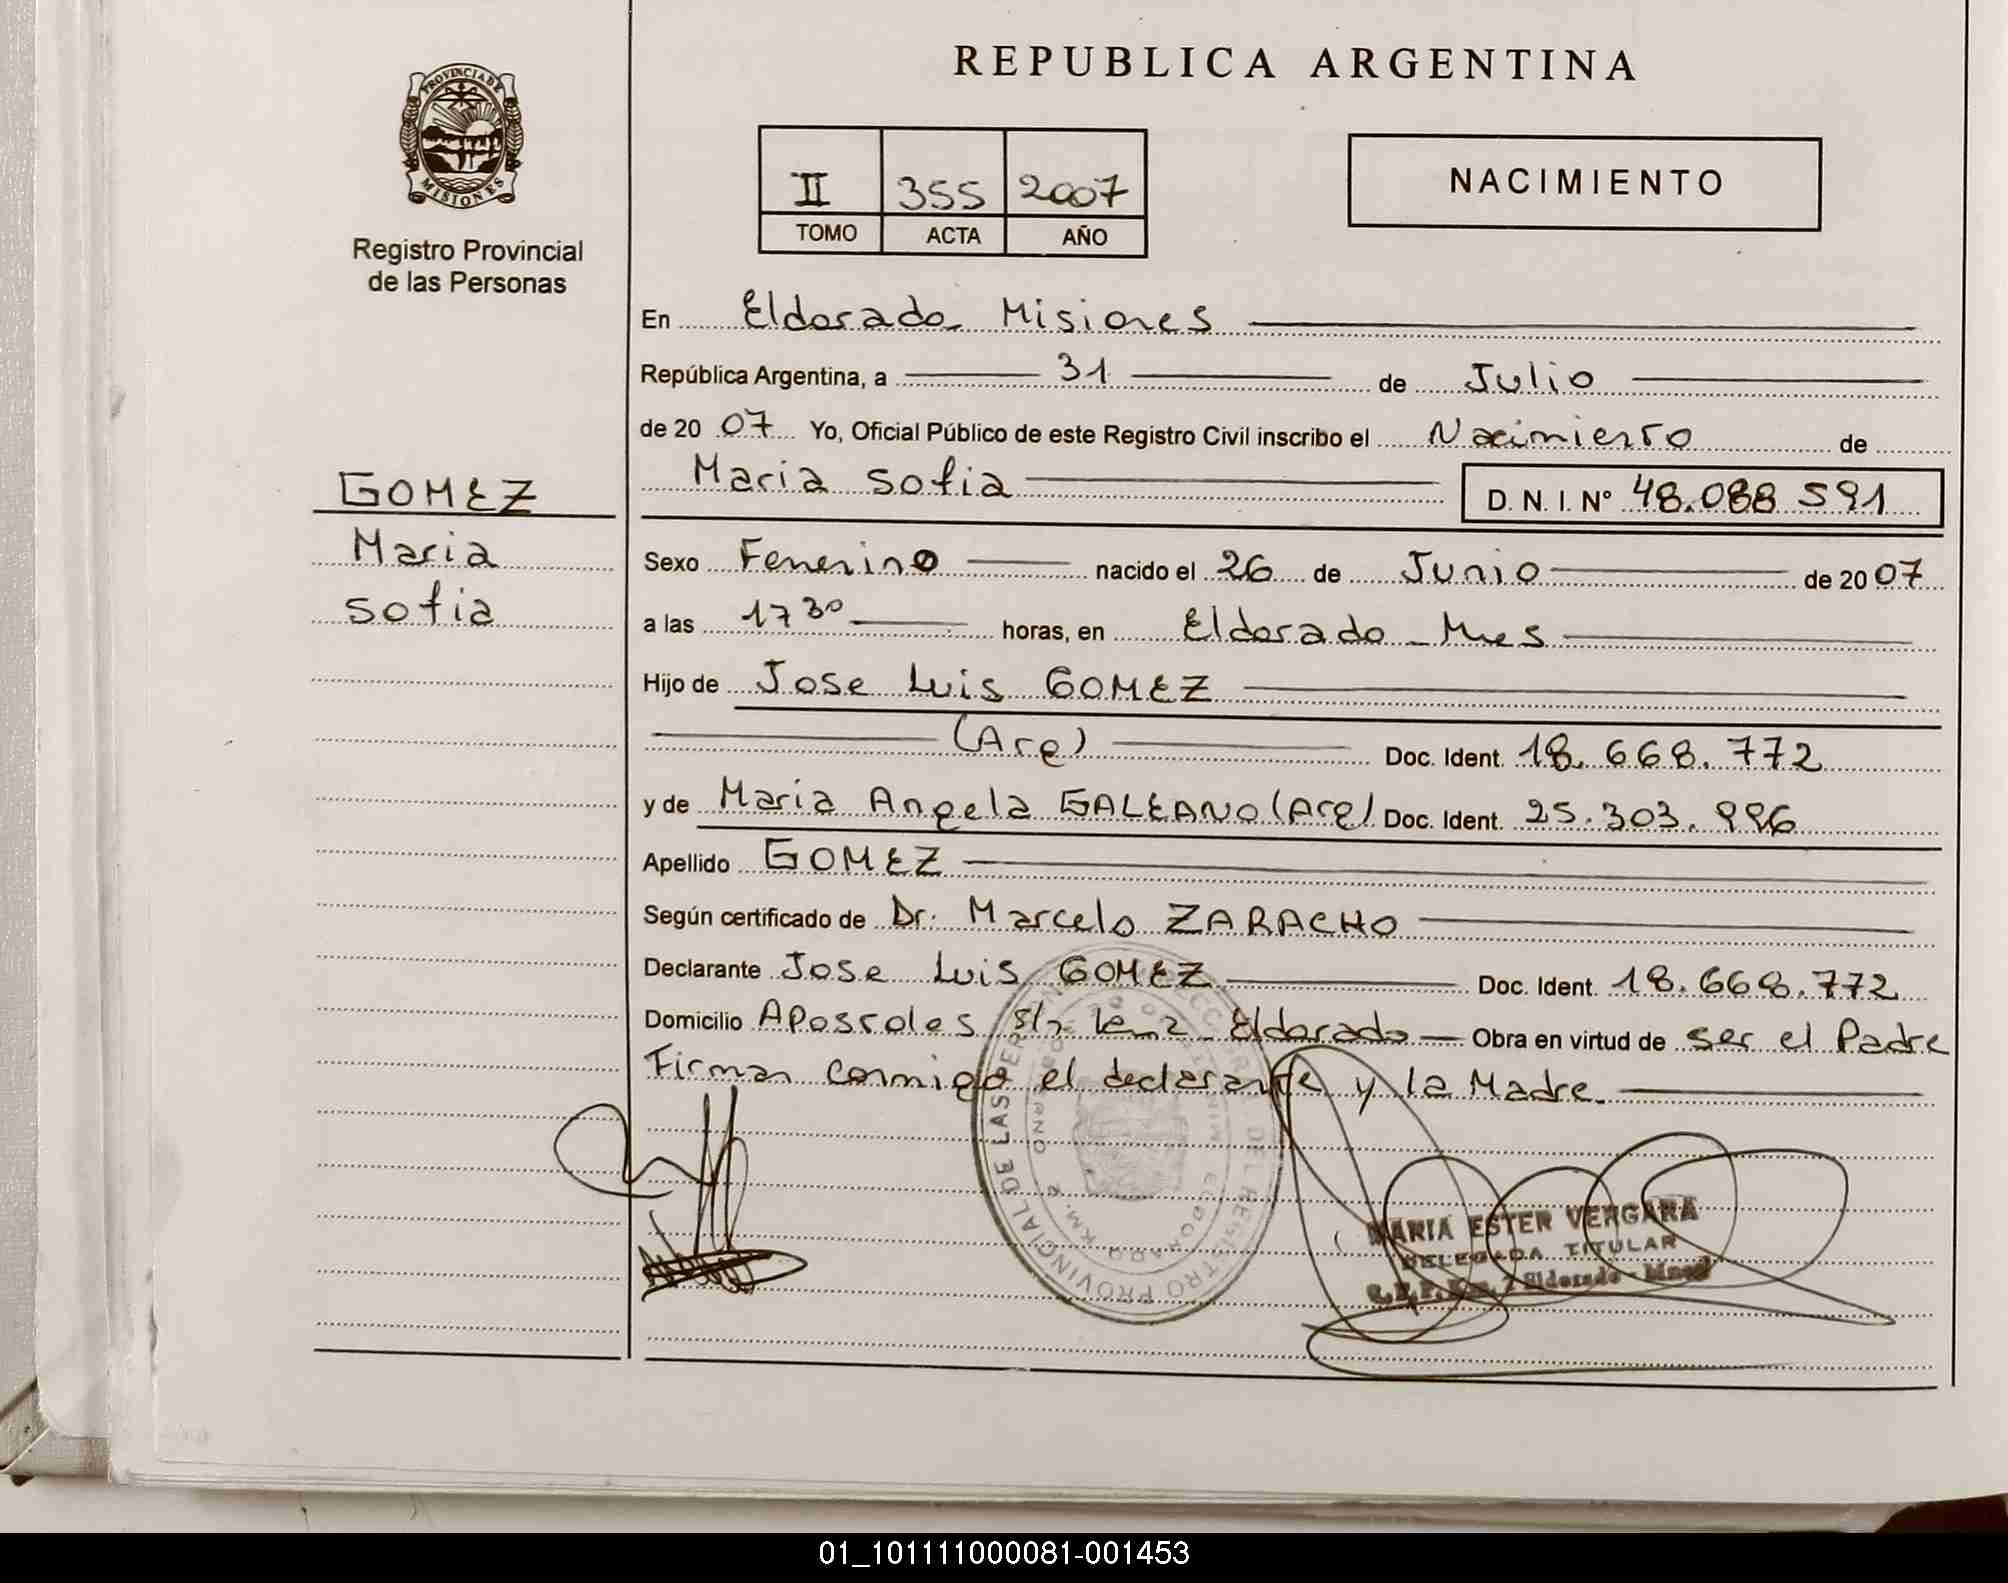 REPUBLICA ARGENTINA
PROVINCIA DE
MISIONES
Registro Provincial
de las Personas
II 355 2007
TOMO ACTA AÑO
NACIMIENTO
En Eldorado Misiones
República Argentina, a 31 de Julio
de 2007 Yo, Oficial Público de este Registro Civil inscribo el Nacimiento de
Maria Sofia D. N. I. Nº 48.088 591
GOMEZ
Maria
Sofia
Sexo Femenino nacido el 26 de Junio de 2007
a las 17 30 horas, en Eldorado - Mnes
Hijo de Jose Luis GOMEZ
(Arg) Doc. Ident. 18.668.772
y de Maria Angela GALEANO (Arg) Doc. Ident. 25.303.996
Apellido GOMEZ
Según certificado de Dr. Marcelo ZARACHO
Declarante Jose Luis GOMEZ Doc. Ident. 18.668.772
Domicilio Apostoles s/n km 2 Eldorado Obra en virtud de ser el Padre
Firman conmigo el declarante y la Madre.
MARIA ESTER VERGARA
DELEGADA TITULAR
Eldorado - Mnes
01_101111000081-001453